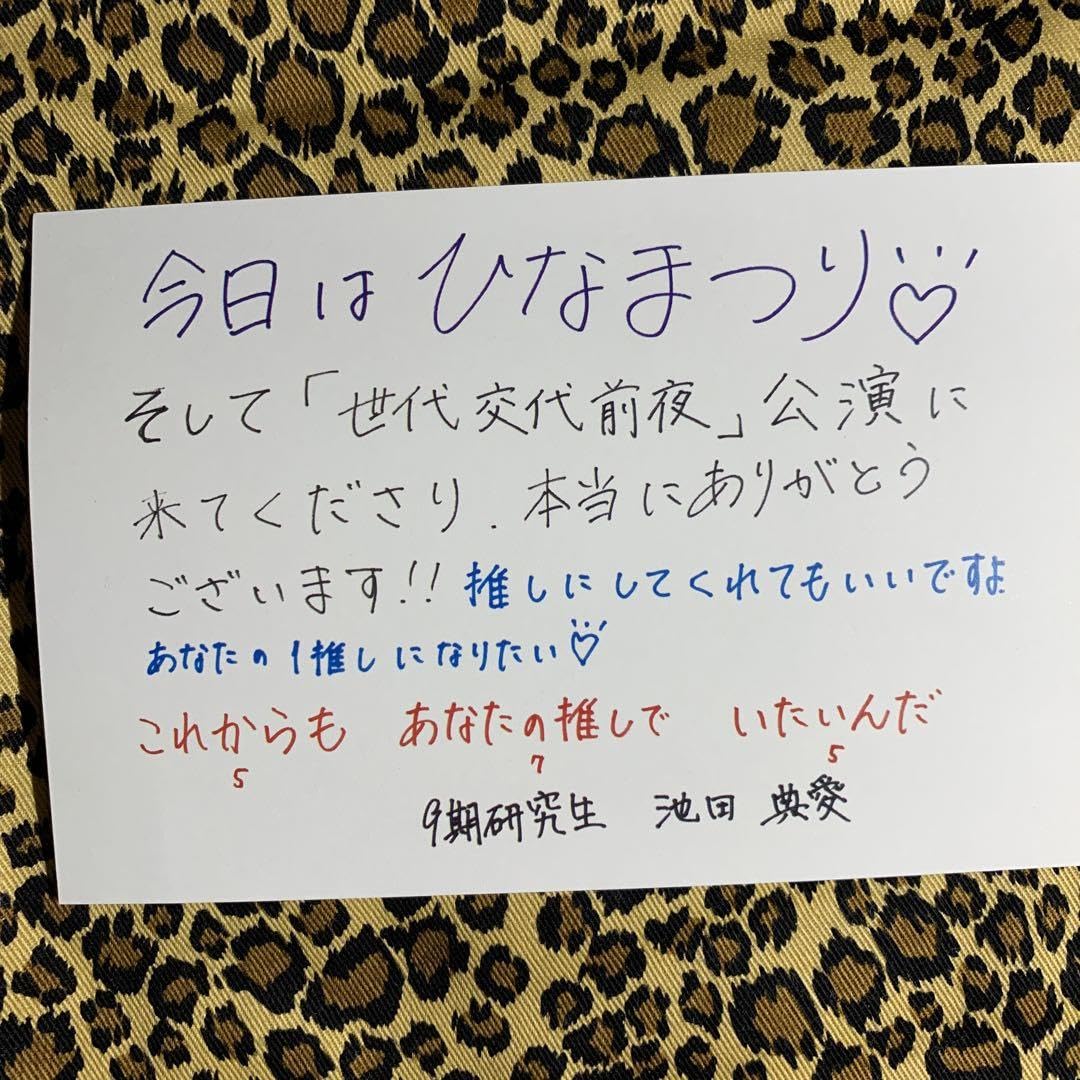 今日はひなまつり♡
そして「世代交代前夜」公演に
来てくださり、本当にありがとう
ございます!! 推しにしてくれてもいいですよ
あなたの1推しになりたい♡
これからも あなたの推しで いたいんだ
5 7 5
9期研究生 池田 典愛